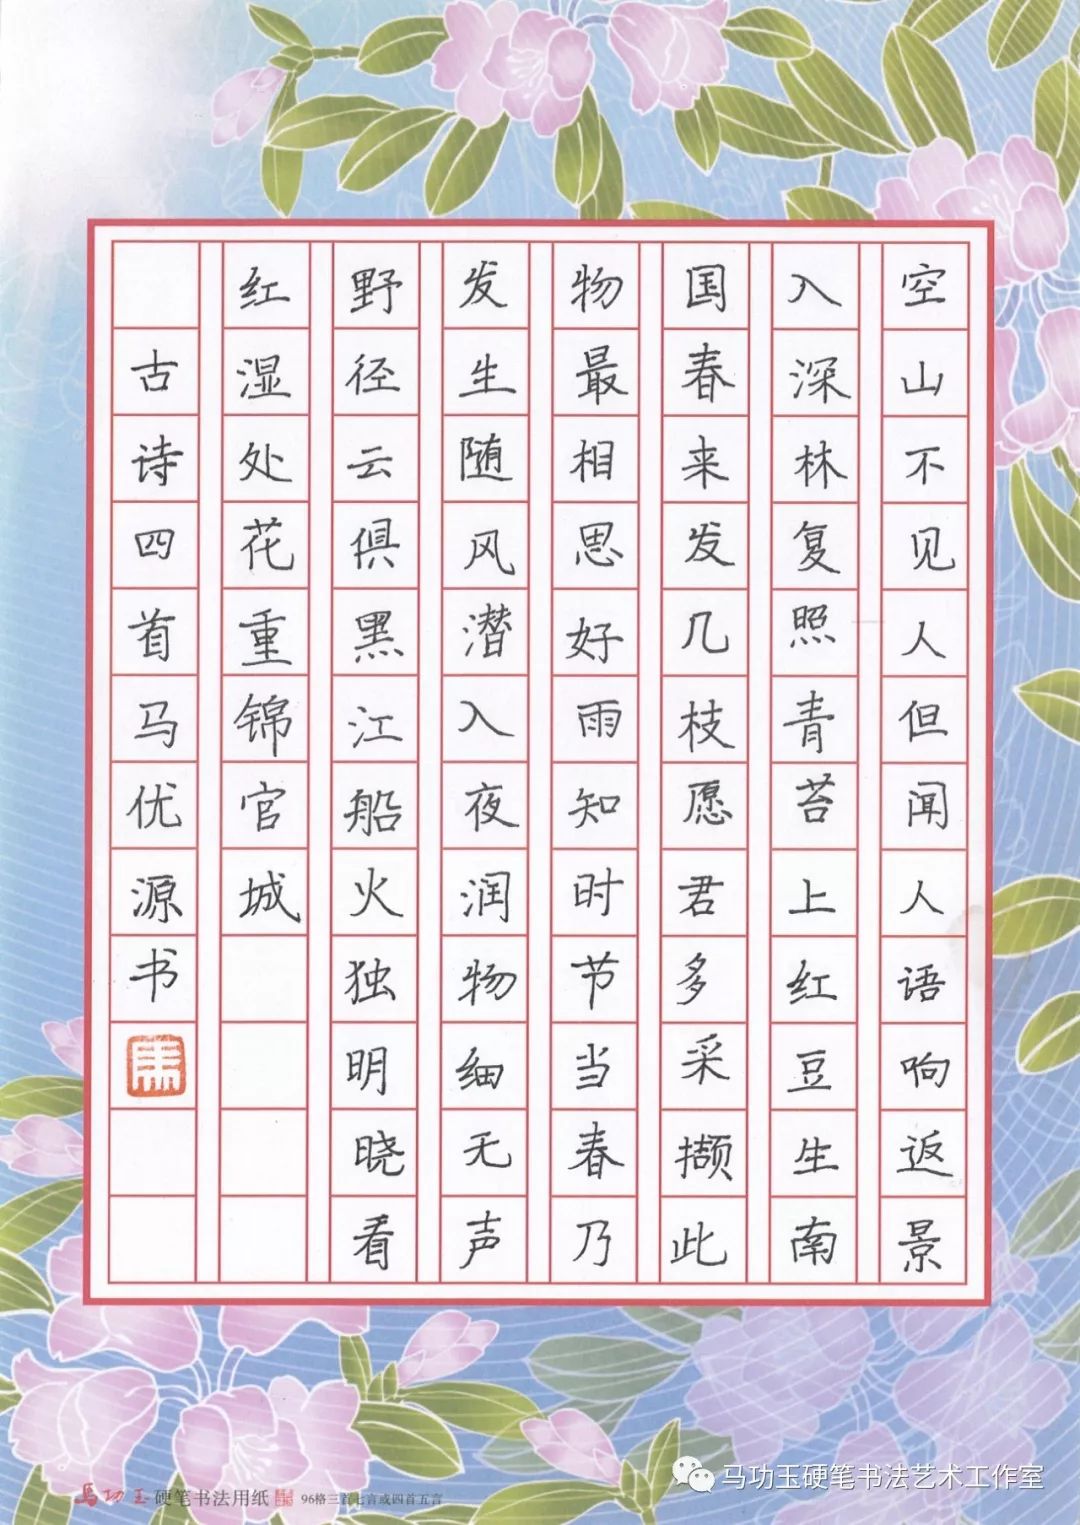 空山不见人但闻人语响返景
入深林复照青苔上红豆生南
国春来发几枝愿君多采撷此
物最相思好雨知时节当春乃
发生随风潜入夜润物细无声
野径云俱黑江船火独明晓看
红湿处花重锦官城
古诗四首马优源书
马功玉硬笔书法用纸 96格三首七言或四首五言
马功玉硬笔书法艺术工作室